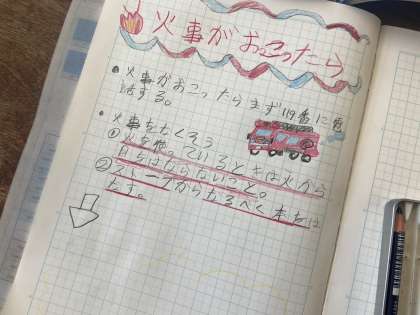 火事がおこったら
●火事がおこったらまず119番に電
話する。
●火事をなくそう
①火を使っているときは火から
目をはならないこと。
②ストーブからなるべく本をは
なす。